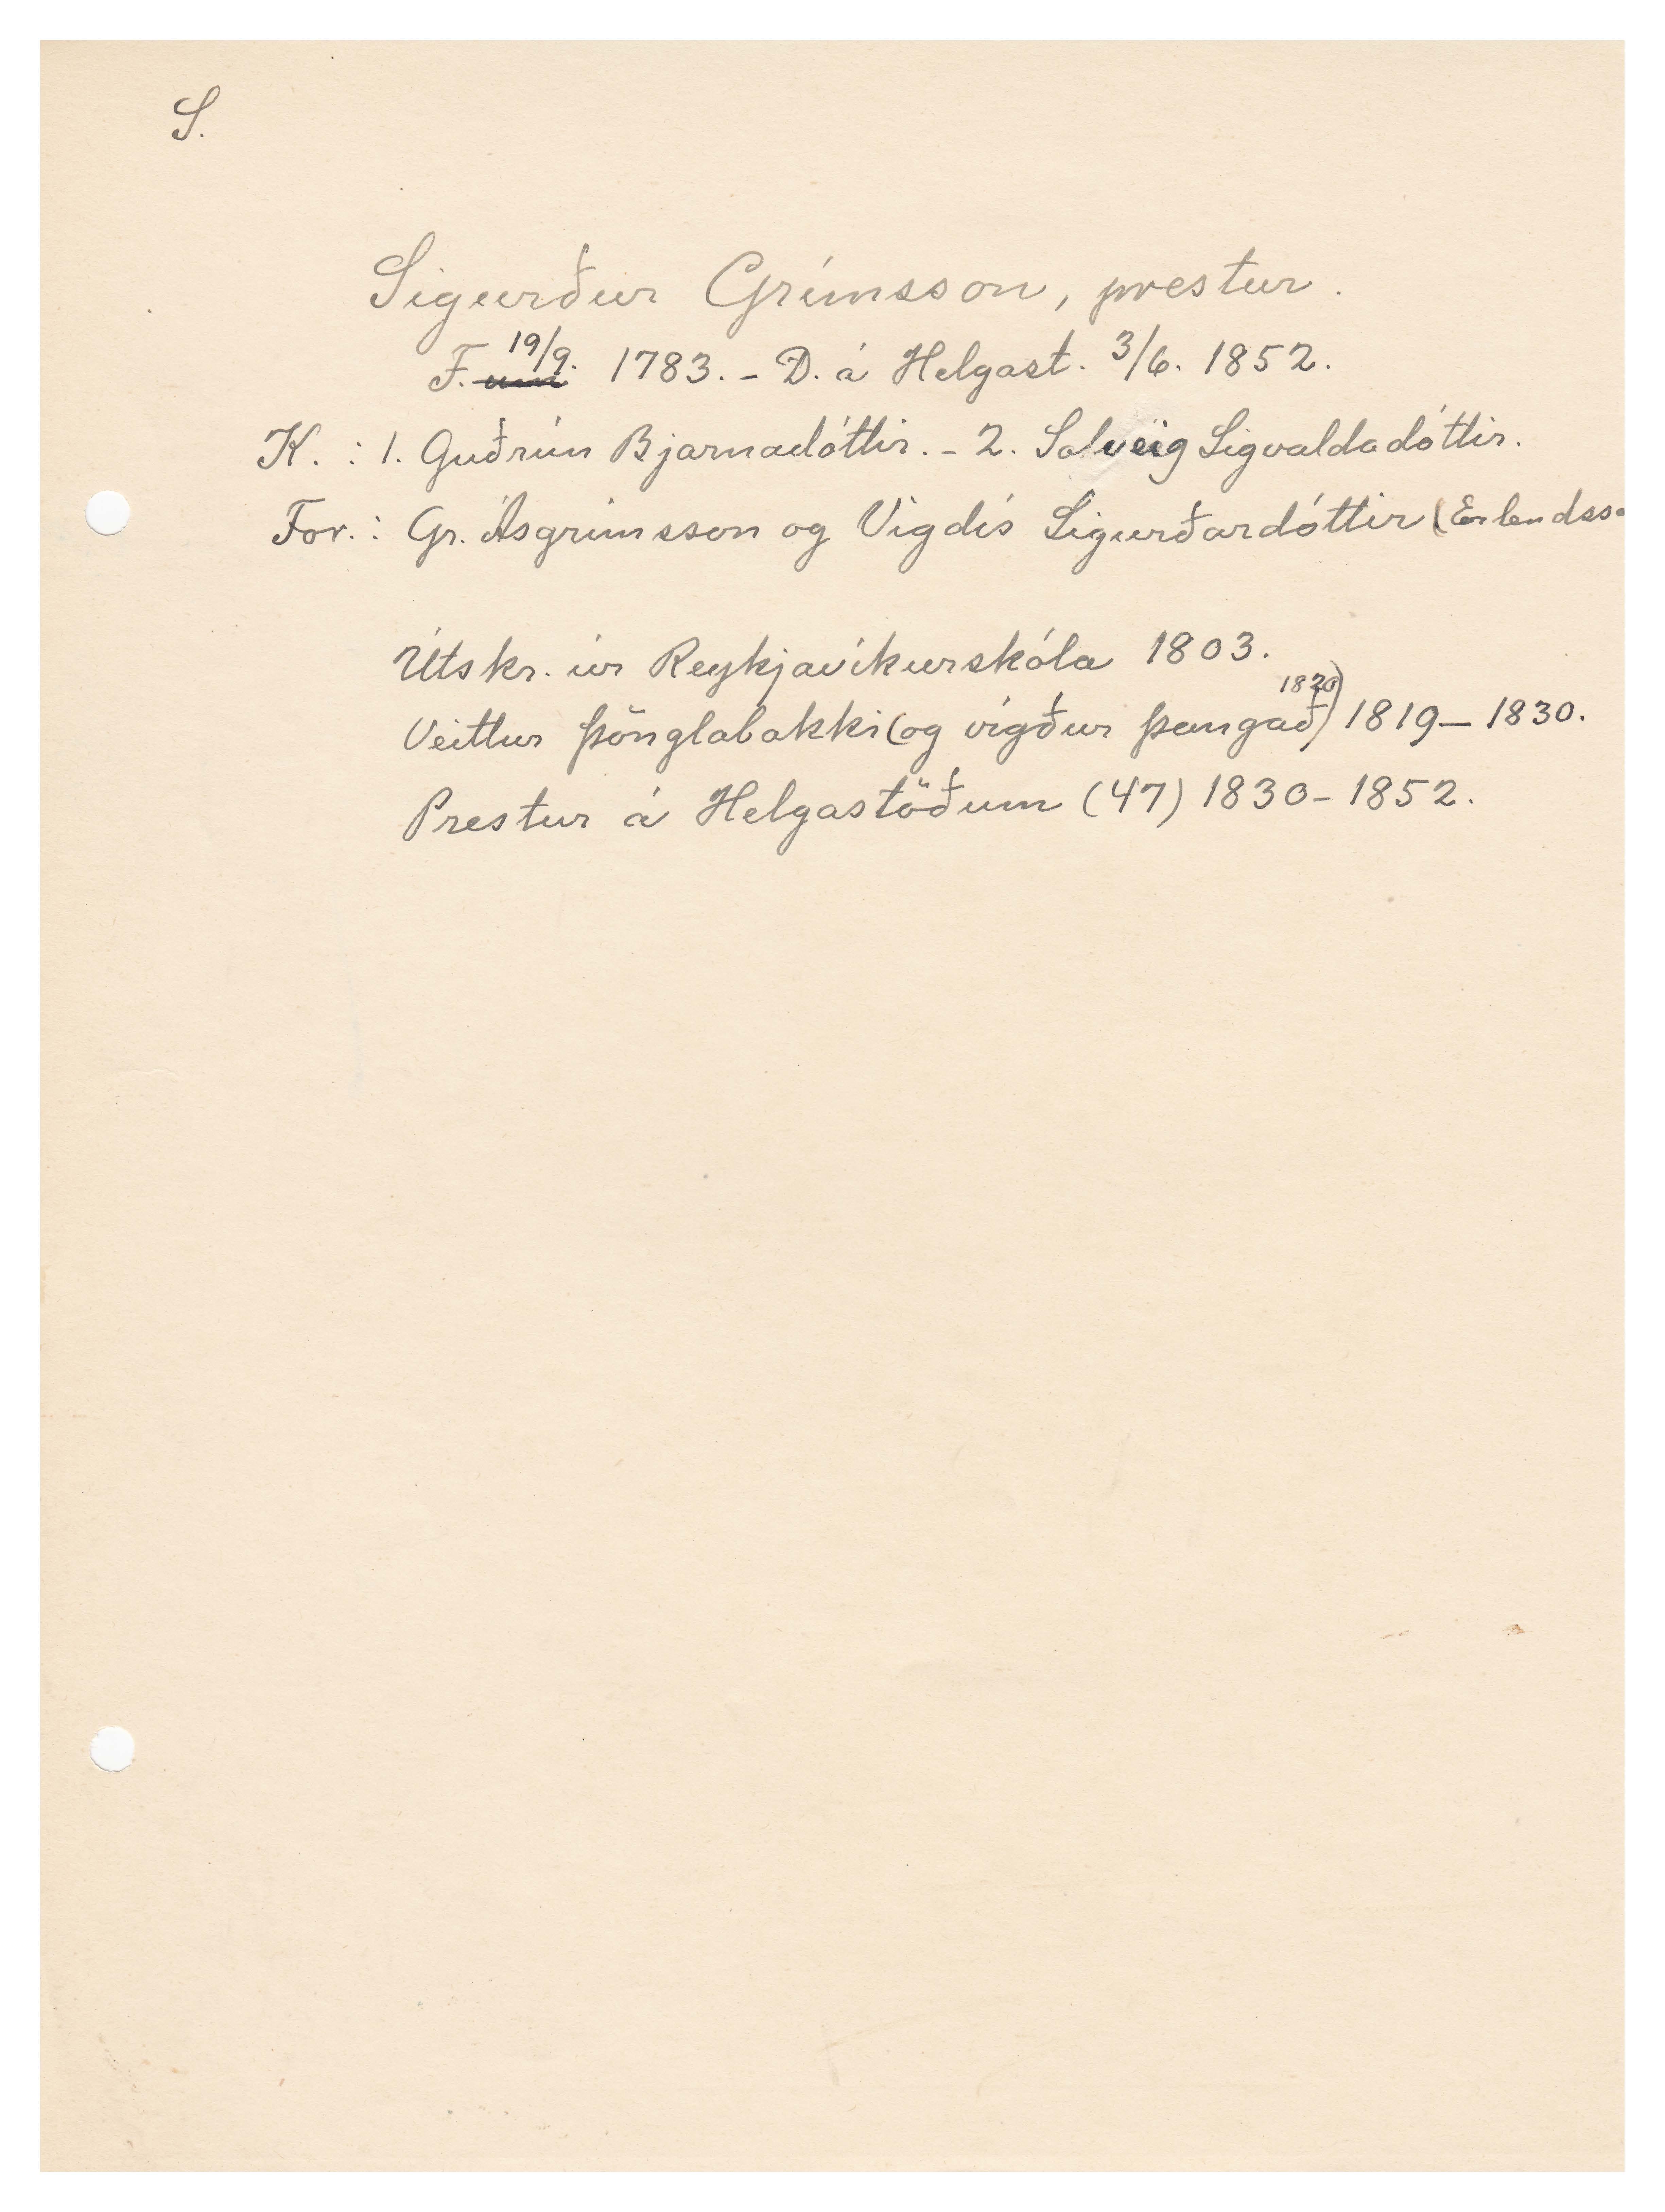 S.
Sigurður Grímsson, prestur.
F. 19/9. 1783. - D. á Helgast. 3/6. 1852.
K. : 1. Guðrún Bjarnadóttir. - 2. Salveig Sigvaldadóttir.
For. : Gr. Ásgrímsson og Vigdís Sigurðardóttir (Erlendsso
Útskr. úr Reykjavíkurskóla 1803.
Veittur Þönglabakki (og vígður þangað 1820) 1819 - 1830.
Prestur á Helgastöðum (47) 1830 - 1852.